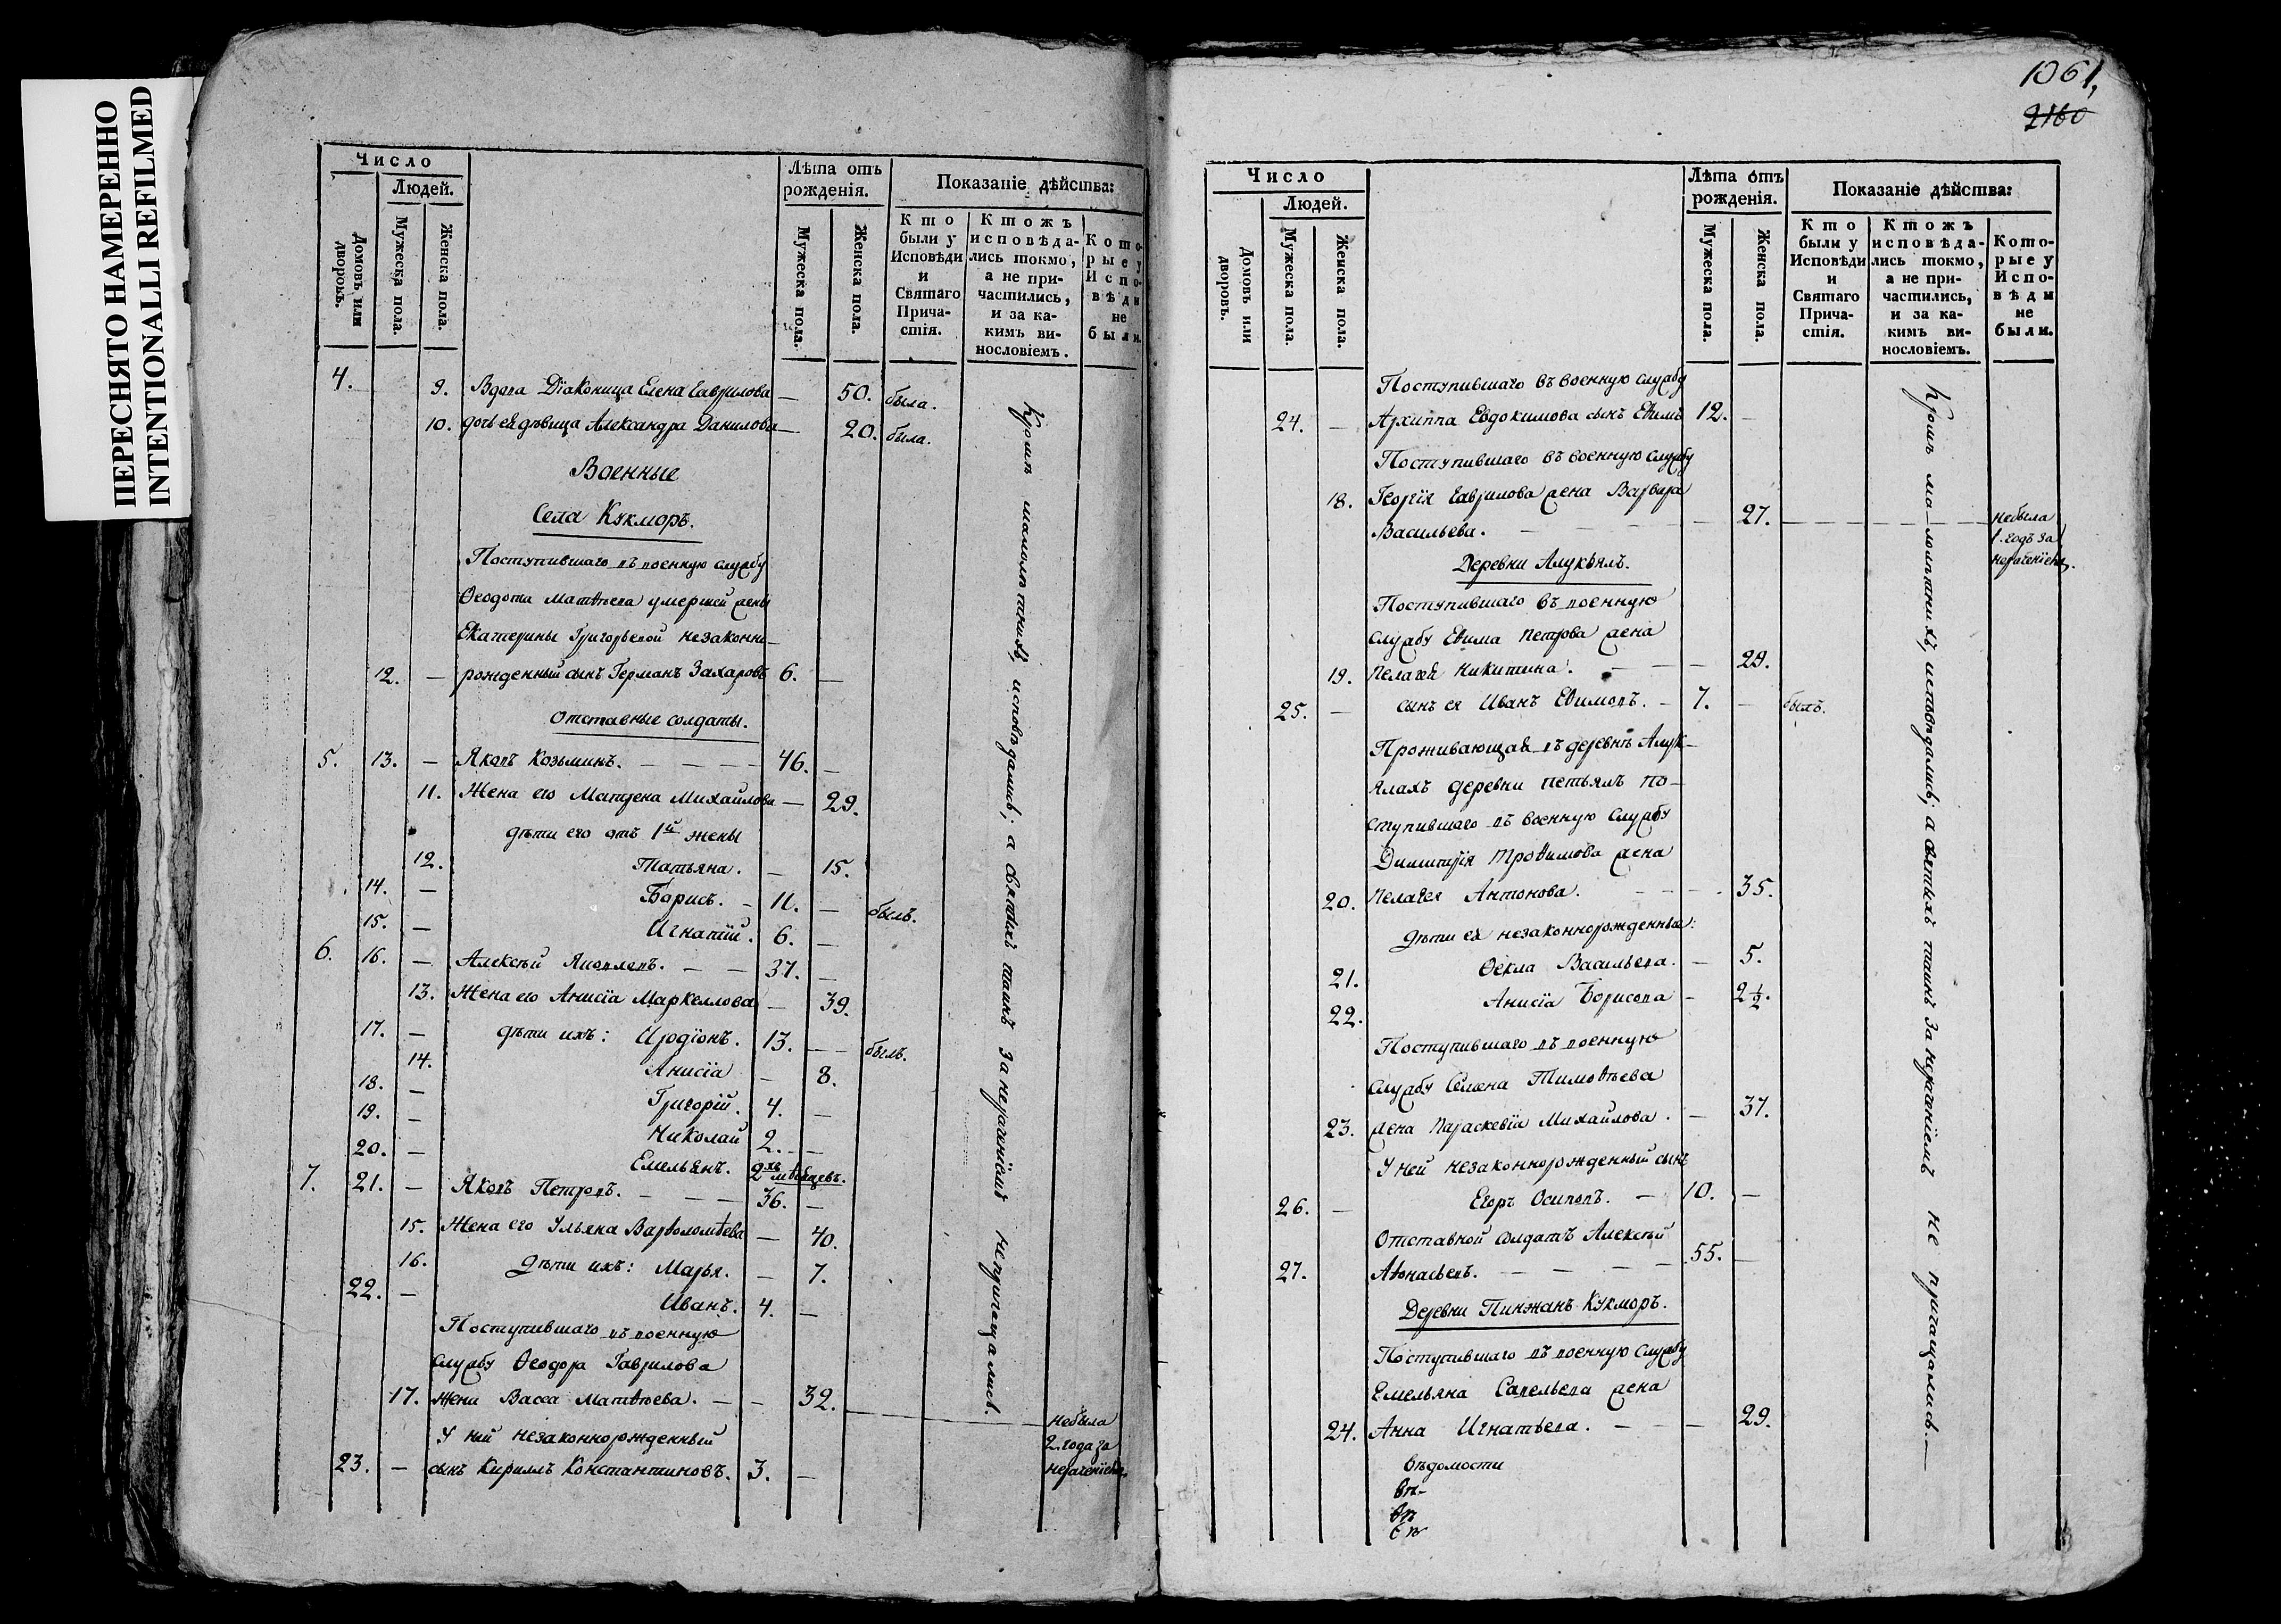 ПЕРЕСНЯТО НАМЕРЕННО
INTENTIONALLI REFILMED
Число
Людей.
Домовъ или дворовъ.
Мужеска пола.
Женска пола.
Лѣта отъ рожденія.
Мужеска пола.
Женска пола.
Показаніе дѣйства:
Кто были у Исповѣди и Святаго Причастія.
Ктожъ исповѣдались токмо, а не причастились, и за какимъ винословіемъ.
Которые у Исповѣди не были.
4. 9. Вдова Діаконица Елена Гаврилова — 50. была.
10. дочь ея дѣвица Александра Данилова — 20. была.
Военные
Села Кукморъ.
Поступившаго въ военную службу
Ѳеодота Матвѣева умершей жены
Екатерины Григорьевой незаконно-
12. — рожденный сынъ Германъ Захаровъ 6. —
Отставные солдаты.
5. 13. — Яковъ Козьминъ. — — — 46. —
11. Жена его Матрена Михайлова — 29.
дѣти его отъ 1й жены
12. Татьяна. — 15.
14. — Борисъ. — 11. — былъ.
15. — Игнатій. 6. —
6. 16. — Алексѣй Яковлевъ. — — 37. —
13. Жена его Анисія Маркеллова — 39.
17. — дѣти ихъ: Иродіонъ. 13. — былъ.
14. Анисія — 8.
18. — Григорій. 4. —
19. — Николай 2. —
20. — Емельянъ. 2хъ мѣсяцевъ.
7. 21. — Яковъ Петровъ. — — — 36. —
15. Жена его Ульяна Варѳоломѣева — 40.
16. Дѣти ихъ: Марья. — 7.
22. — Иванъ. 4. —
Поступившаго въ военную
службу Ѳеодора Гаврилова
17. жена Васса Матвѣева. — — 32. небыла
2. года за
нераченіемъ.
У ней незаконнорожденный
23. — сынъ Кириллъ Константиновъ. 3. —
Кромѣ малолѣтнихъ, исповѣдались; а святыхъ таинъ за нераченіемъ непричащались.
1061,
2160
Число
Людей.
Домовъ или дворовъ.
Мужеска пола.
Женска пола.
Лѣта отъ рожденія.
Мужеска пола.
Женска пола.
Показаніе дѣйства:
Кто были у Исповѣди и Святаго Причастія.
Ктожъ исповѣдались токмо, а не причастились, и за какимъ винословіемъ.
Которые у Исповѣди не были.
Поступившаго въ военную службу
24. — Архиппа Евдокимова сынъ Еѳимъ 12. —
Поступившаго въ военную службу
18. Георгія Гаврилова жена Варвара
Васильева. — — — 27. — — — небыла
1. годъ за
нераченіемъ.
Деревни Алукъялъ.
Поступившаго въ военную
службу Еѳима Петрова жена
19. Пелагея Никитина. — — — 29.
25. — сынъ ея Иванъ Еѳимовъ. — 7. — былъ.
Проживающая въ деревнѣ Алук-
ялахъ деревни Петьялъ по-
ступившаго въ военную службу
Димитрія Троѳимова жена
20. Пелагея Антонова. — — — 35.
Дѣти ея незаконнорожденныя:
21. Ѳекла Васильева. — 5.
22. Анисія Борисова — 2½.
Поступившаго въ военную
службу Семена Тимоѳѣева
23. жена Параскевія Михайлова. — 37.
У ней незаконнорожденный сынъ
26. — Егоръ Осиповъ. — 10. —
Отставной солдатъ Алексѣй
27. Аѳонасьевъ. — — — — 55. —
Деревни Пинжанъ Кукморъ.
Поступившаго въ военную службу
Емельяна Савельева жена
24. Анна Игнатьева. — — — 29.
вѣдомости
Кромѣ малолѣтнихъ, исповѣдались; а святыхъ таинъ за нераченіемъ не причащались. —